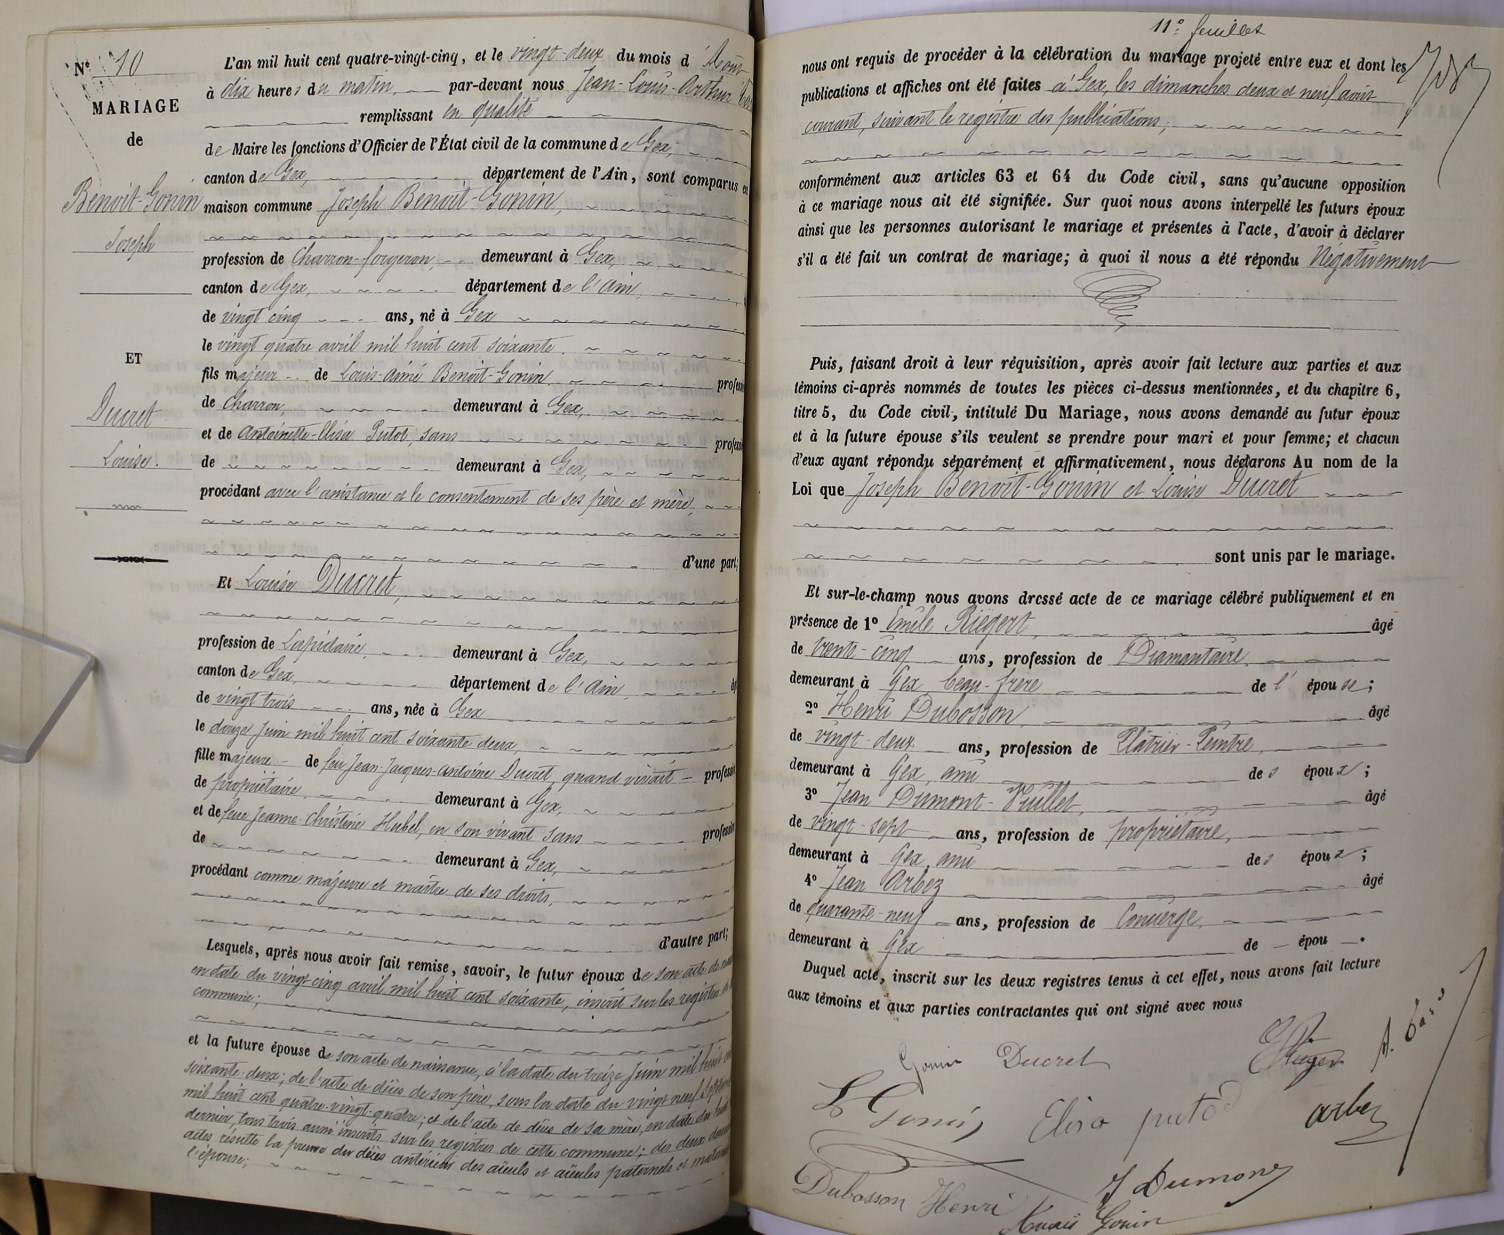 Nº 10
MARIAGE
de
Benoit-Gonin
Joseph
ET
Ducret
Louise.
L'an mil huit cent quatre-vingt-cinq, et le vingt-deux du mois d'Août
à dix heures du matin, par-devant nous Jean-Louis-Arthur
remplissant en qualité
de Maire les fonctions d'Officier de l'État civil de la commune de Gex,
canton de Gex, département de l'Ain, sont comparus en
maison commune Joseph Benoit-Gonin,
profession de Charron-forgeron, demeurant à Gex,
canton de Gex, département de l'Ain
de vingt cinq ans, né à Gex
le vingt quatre avril mil huit cent soixante.
fils majeur de Louis-Aimé Benoit-Gonin, profession
de Charron, demeurant à Gex,
et de Antoinette-Elisa Putod, sans profession
de demeurant à Gex,
procédant avec l'assistance et le consentement de ses père et mère,
d'une part;
Et Louise Ducret,
profession de Lapidaire, demeurant à Gex,
canton de Gex, département de l'Ain
de vingt trois ans, née à Gex
le douze juin mil huit cent soixante deux,
fille majeure de feu Jean-Jacques-Antoine Ducret, quand vivait profession
de propriétaire, demeurant à Gex,
et de feue Jeanne-Christine Hubel, en son vivant sans profession
de demeurant à Gex,
procédant comme majeure et maître de ses droits,
d'autre part;
Lesquels, après nous avoir fait remise, savoir, le futur époux de son acte de
en date du vingt cinq avril mil huit cent soixante, inscrit sur les registres de
commune;
et la future épouse de son acte de naissance, à la date du treize juin mil huit cent
soixante-deux; de l'acte de décès de son père, sous la date du vingt neuf Septembre
mil huit cent quatre-vingt-quatre; et de l'acte de décès de sa mère, en date du
dernier, tous trois aussi inscrits sur les registres de cette commune; des deux
actes résulte la preuve des décès antérieurs des aïeuls et aïeules paternels et maternels
l'épouse;
11e feuillet
nous ont requis de procéder à la célébration du mariage projeté entre eux et dont les
publications et affiches ont été faites à Gex, les dimanches deux et neuf août
courant, suivant le registre des publications;
conformément aux articles 63 et 64 du Code civil, sans qu'aucune opposition
à ce mariage nous ait été signifiée. Sur quoi nous avons interpellé les futurs époux
ainsi que les personnes autorisant le mariage et présentes à l'acte, d'avoir à déclarer
s'il a été fait un contrat de mariage; à quoi il nous a été répondu Négativement
Puis, faisant droit à leur réquisition, après avoir fait lecture aux parties et aux
témoins ci-après nommés de toutes les pièces ci-dessus mentionnées, et du chapitre 6,
titre 5, du Code civil, intitulé Du Mariage, nous avons demandé au futur époux
et à la future épouse s'ils veulent se prendre pour mari et pour femme; et chacun
d'eux ayant répondu séparément et affirmativement, nous déclarons Au nom de la
Loi que Joseph Benoit-Gonin et Louise Ducret
sont unis par le mariage.
Et sur-le-champ nous avons dressé acte de ce mariage célébré publiquement et en
présence de 1º Emile Riegert, âgé
de trente-cinq ans, profession de Diamantaire,
demeurant à Gex beau-frère de l'épouse;
2º Henri Dubosson, âgé
de vingt-deux ans, profession de Plâtrier-Peintre,
demeurant à Gex, ami des époux;
3º Jean Dumont-Vuillet, âgé
de vingt-sept ans, profession de propriétaire,
demeurant à Gex, ami des époux;
4º Jean Arbez âgé
de quarante-neuf ans, profession de Concierge,
demeurant à Gex de épou .
Duquel acte, inscrit sur les deux registres tenus à cet effet, nous avons fait lecture
aux témoins et aux parties contractantes qui ont signé avec nous
Gonin Ducret
L Gonin Elisa putod arbez
Dubosson Henri J Dumont
Gonin